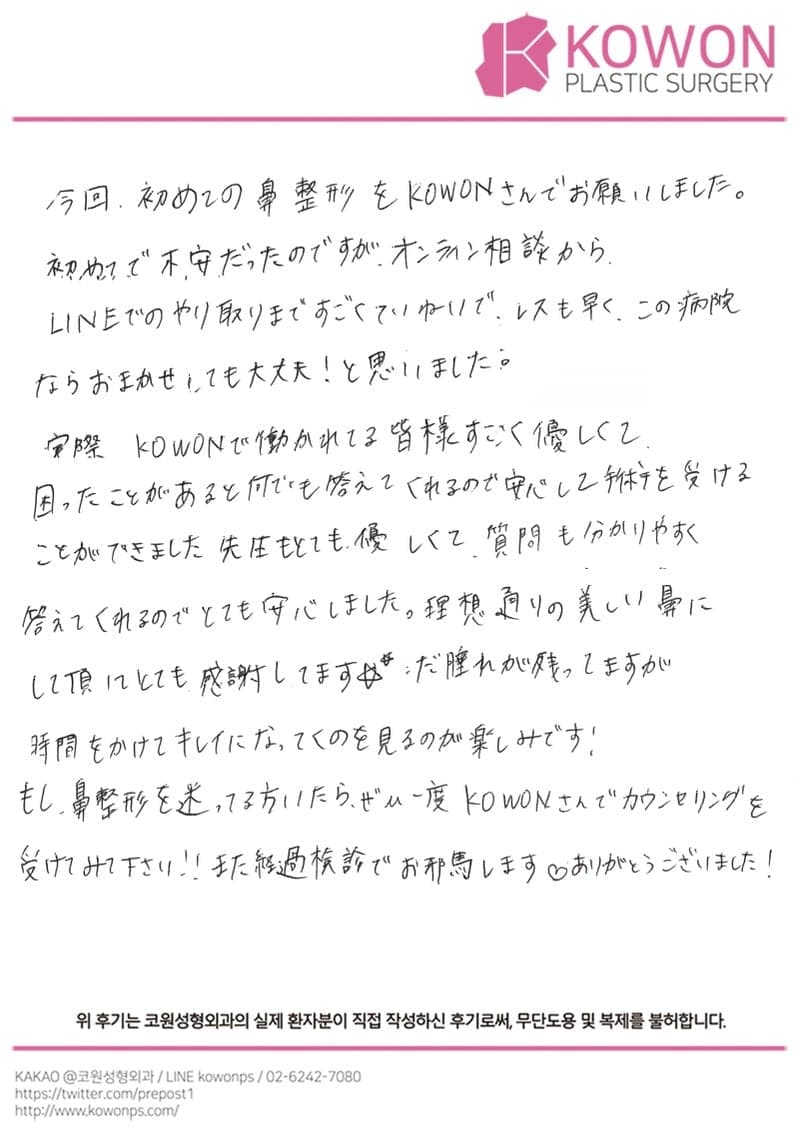 KOWON
PLASTIC SURGERY
今回、初めての鼻整形をKOWONさんでお願いしました。
初めてで不安だったのですが、オンライン相談から、
LINEでのやり取りまですごくていねいで、レスも早く、この病院
ならおまかせしても大丈夫!と思いました。
実際 KOWONで働かれてる皆様すごく優しくて、
困ったことがあると何でも答えてくれるので安心して手術を受ける
ことができました 先生もとても優しくて、質問も分かりやすく
答えてくれるのでとても安心しました。理想通りの美しい鼻に
して頂いてとても感謝してます まだ腫れが残ってますが
時間をかけてキレイになってくのを見るのが楽しみです!
もし、鼻整形を迷ってる方いたら、ぜひ一度 KOWONさんでカウンセリングを
受けてみて下さい!! また経過検診でお邪魔します♡ありがとうございました!
위 후기는 코원성형외과의 실제 환자분이 직접 작성하신 후기로써, 무단도용 및 복제를 불허합니다.
KAKAO @코원성형외과 / LINE kowonps / 02-6242-7080
https://twitter.com/prepost1
http://www.kowonps.com/